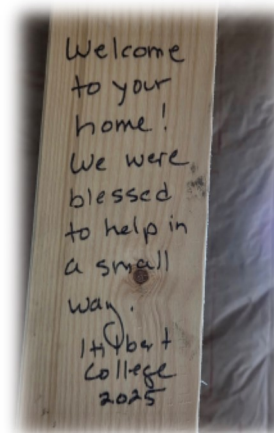 Welcome
to your
home!
We were
blessed
to help in
a small
way.
Hilbert
College
2025